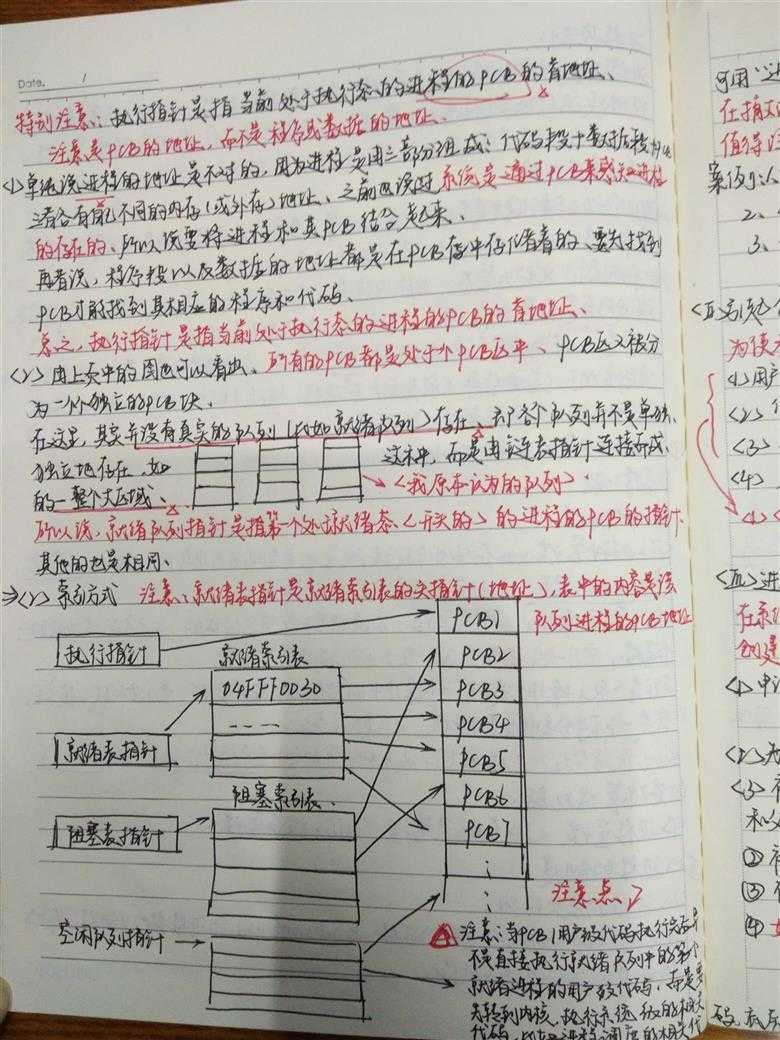 Date. 1
特别注意:执行指针是指当前处于执行态的进程的PCB的首地址、
注意是PCB的地址,而不是程序或数据的地址、
<1>单纯说进程的地址是不对的,因为进程是由三部分组成:代码段+数据段+PCB
三者各有自己不同的内存(或外存)地址、之前也说过系统是通过PCB来感知进程
的存在的、所以说要将进程和其PCB结合起来、
再者说,程序段以及数据段的地址都是在PCB存中存储着的、要先找到
PCB才能找到其相应的程序和代码、
总之,执行指针是指当前处于执行态的进程的PCB的首地址、
<2>由上页中的图也可以看出、所有的PCB都是处于个PCB区中、PCB区又被分
为一个个独立的PCB块、
在这里,其实并没有真实的队列(比如就绪队列)存在、各个队列并不是单独、
独立地存在,如
这样,而是由链表指针连接而成
的一整个大区域、
<我原本认为的队列>
所以说,就绪队列指针是指第一个处于就绪态<开头的>的进程的PCB的指针、
其他的也是相同、
⇒<2>索引方式 注意、就绪表指针是就绪索引表的头指针(地址),表中的内容是该
队列进程的PCB地址
执行指针
就绪索引表
04FFF0030
就绪表指针
阻塞索引表、
阻塞表指针
空闲队列指针
PCB1
PCB2
PCB3
PCB4
PCB5
PCB6
PCB7
注意点
注意:当PCB1用户级代码执行完后并
不是直接执行就绪队列中的第一个
就绪进程的用户级代码,而是要
先转到内核,执行系统级的相关
代码,
可用“进
在描
值得
案例:
2、
3、
为使
<1>用户
<2>
<3>
<4>
<III>进
在系
创建
<1>申
<2>为
<3>
和
①
③
④
码,